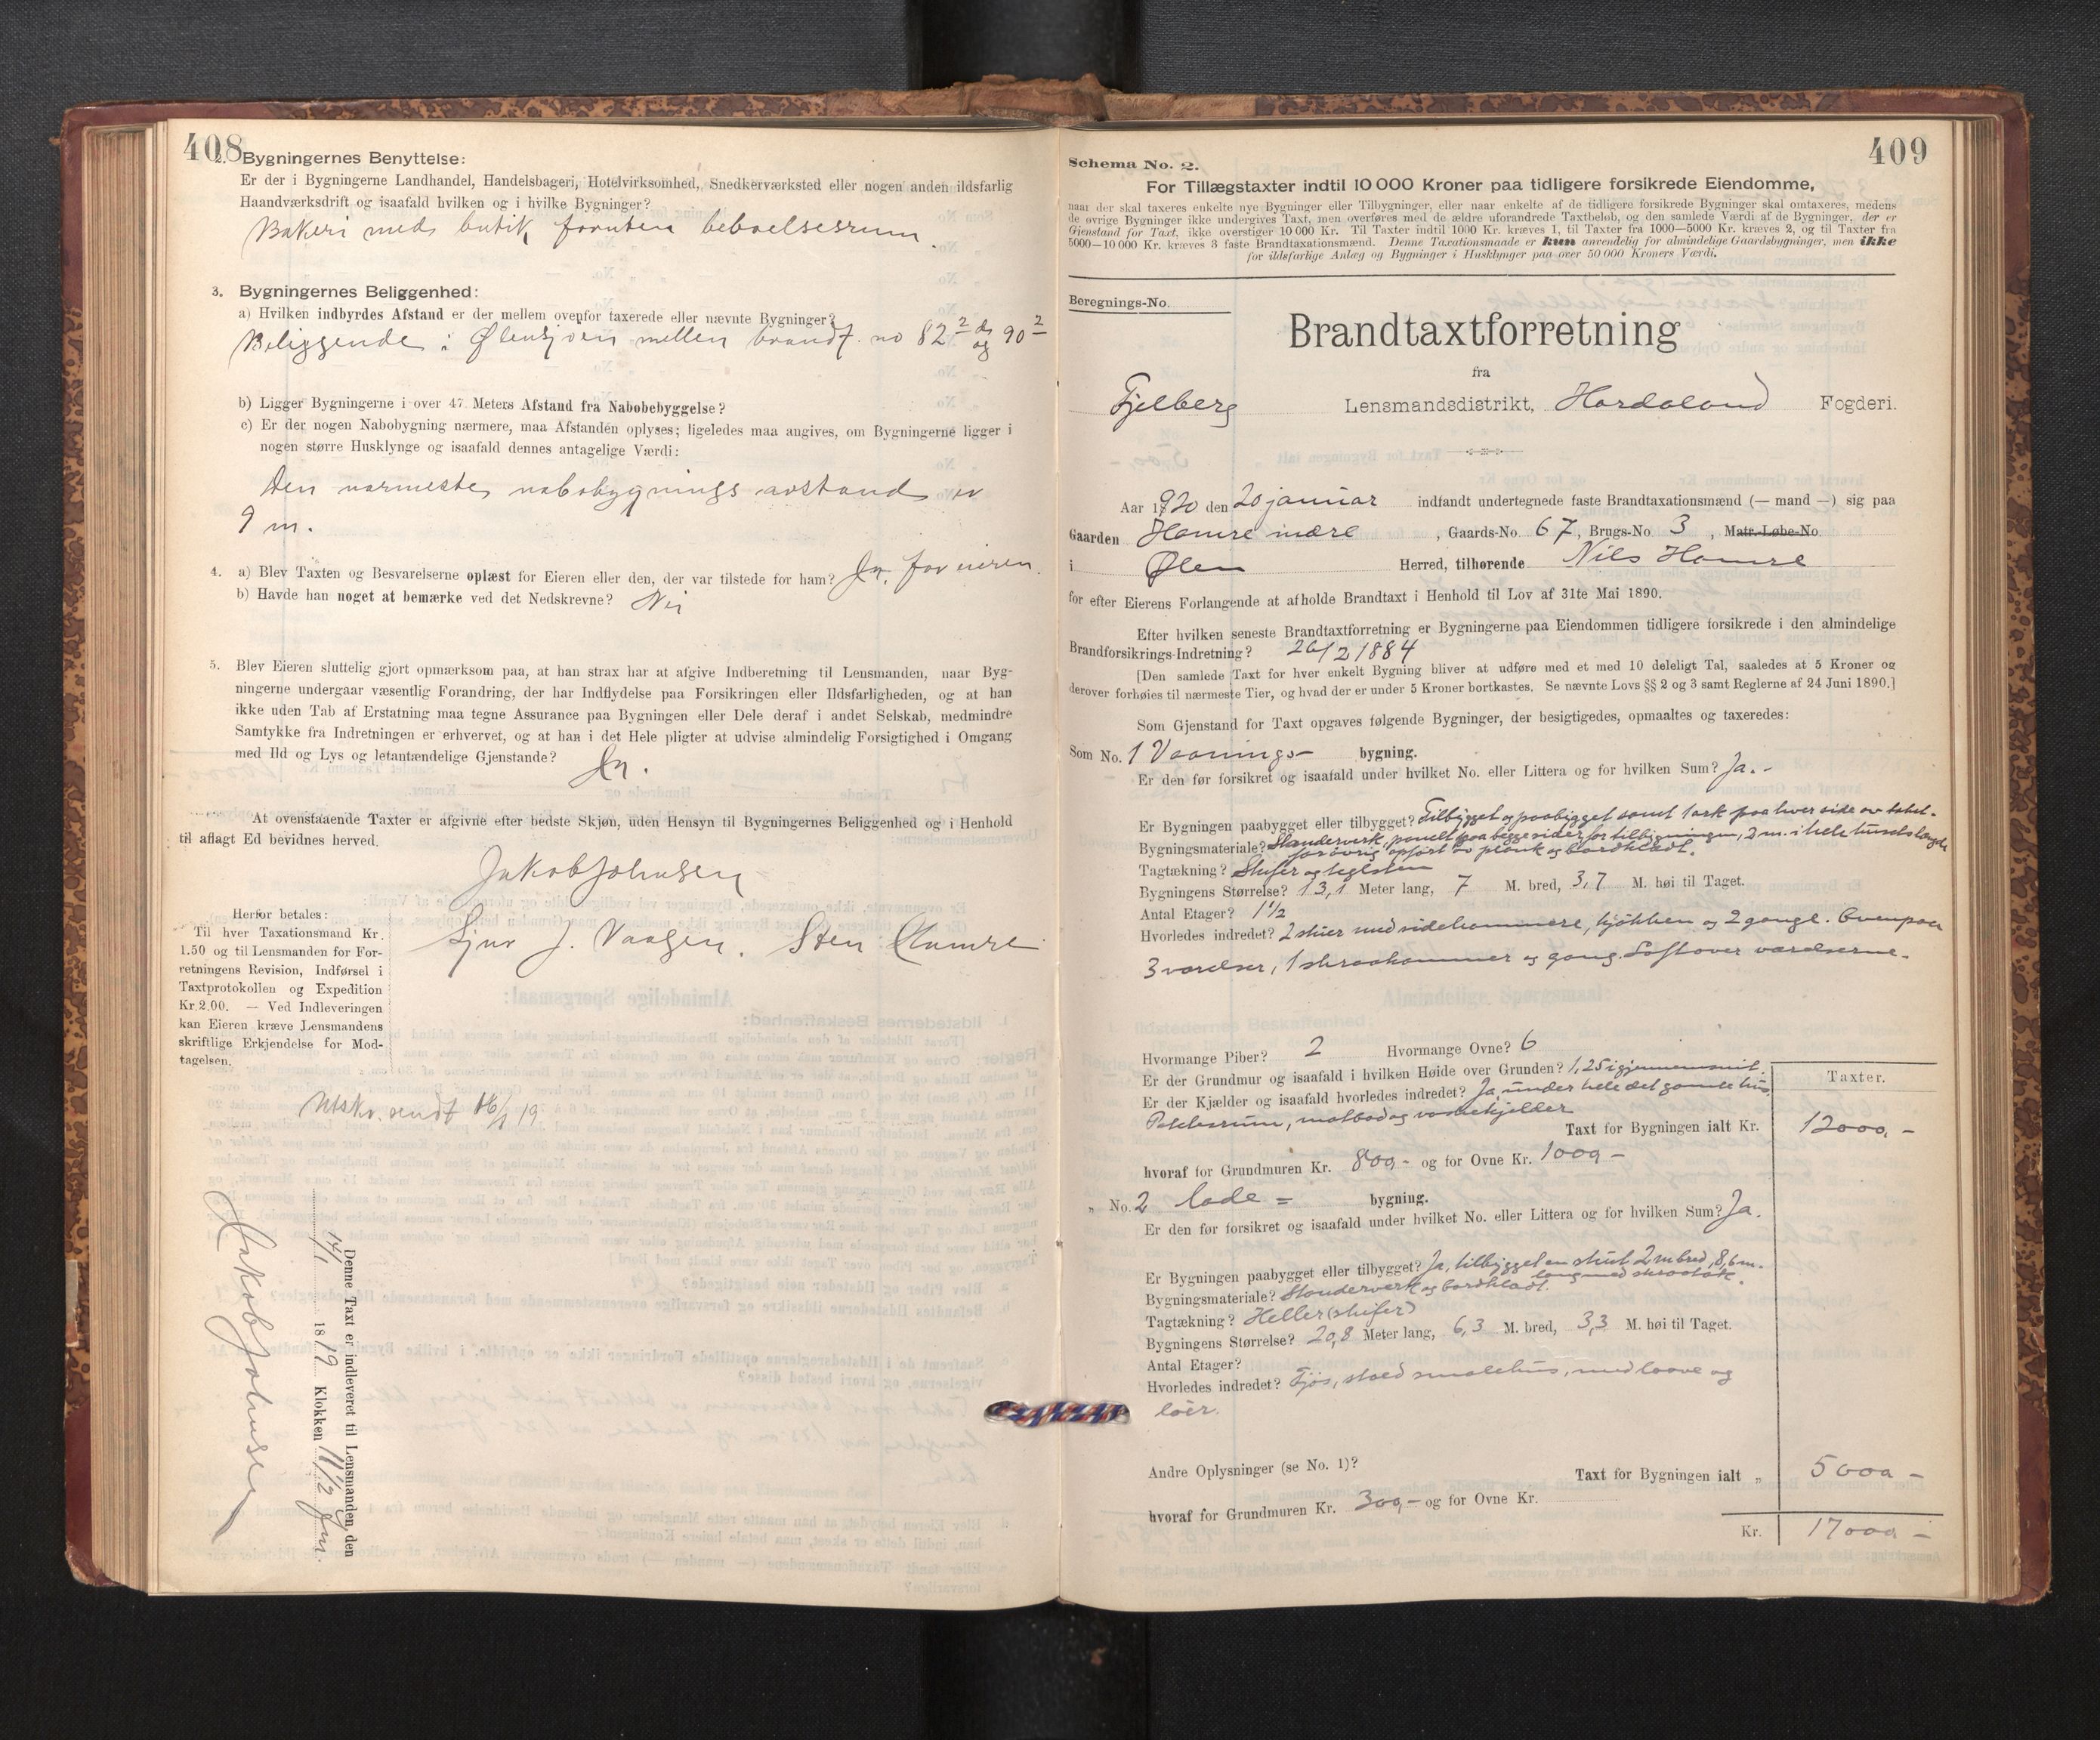 408
2. Bygningernes Benyttelse:
Er der i Bygningerne Landhandel, Handelsbageri, Hotelvirksomhed, Snedkerværksted eller nogen anden ildsfarlig
Haandværksdrift og isaafald hvilken og i hvilke Bygninger?
Bakeri med butik foruten beboelsesrum.
3. Bygningernes Beliggenhed:
a) Hvilken indbyrdes Afstand er der mellem ovenfor taxerede eller nævnte Bygninger?
Beliggende i Ølensjøen mellen brandt. no 82 og 90
b) Ligger Bygningerne i over 47 Meters Afstand fra Nabobebyggelse?
c) Er der nogen Nabobygning nærmere, maa Afstanden oplyses; ligeledes maa angives, om Bygningerne ligger i
nogen større Husklynge og isaafald dennes antagelige Værdi:
Den nærmeste nabobygnings avstand er
9 m.
4. a) Blev Taxten og Besvarelserne oplæst for Eieren eller den, der var tilstede for ham? Ja, for eieren.
b) Havde han noget at bemærke ved det Nedskrevne? Nei
5. Blev Eieren sluttelig gjort opmærksom paa, at han strax har at afgive Indberetning til Lensmanden, naar Byg-
ningerne undergaar væsentlig Forandring, der har Indflydelse paa Forsikringen eller Ildsfarligheden, og at han
ikke uden Tab af Erstatning maa tegne Assurance paa Bygningen eller Dele deraf i andet Selskab, medmindre
Samtykke fra Indretningen er erhvervet, og at han i det Hele pligter at udvise almindelig Forsigtighed i Omgang
med Ild og Lys og letantændelige Gjenstande? Ja.
At ovenstaaende Taxter er afgivne efter bedste Skjøn, uden Hensyn til Bygningernes Beliggenhed og i Henhold
til aflagt Ed bevidnes herved.
Jakob Johnsen
Sjur J. Vaagen. Sten Hamre
Herfor betales:
Til hver Taxationsmand Kr.
1.50 og til Lensmanden for For-
retningens Revision, Indførsel i
Taxtprotokollen og Expedition
Kr. 2.00. — Ved Indleveringen
kan Eieren kræve Lensmandens
skriftlige Erkjendelse for Mod-
tagelsen.
Utskr. sendt 16/1 19.
Denne Taxt er indleveret til Lensmanden den
14/1 1819 Klokken 11 1/2 fm.
Jakob Johnsen
409
Schema No. 2.
For Tillægstaxter indtil 10 000 Kroner paa tidligere forsikrede Eiendomme,
naar der skal taxeres enkelte nye Bygninger eller Tilbygninger, eller naar enkelte af de tidligere forsikrede Bygninger skal omtaxeres, medens
de øvrige Bygninger ikke undergives Taxt, men overføres med de ældre uforandrede Taxtbeløb, og den samlede Værdi af de Bygninger, der er
Gjenstand for Taxt, ikke overstiger 10 000 Kr. Til Taxter indtil 1000 Kr. kræves 1, til Taxter fra 1000—5000 Kr. kræves 2, og til Taxter fra
5000—10 000 Kr. kræves 3 faste Brandtaxationsmænd. Denne Taxationsmaade er kun anvendelig for almindelige Gaardsbygninger, men ikke
for ildsfarlige Anlæg og Bygninger i Husklynger paa over 50 000 Kroners Værdi.
Beregnings-No.
Brandtaxtforretning
fra
Fjelberg Lensmandsdistrikt, Hordaland Fogderi.
Aar 1920 den 20 januar indfandt undertegnede faste Brandtaxationsmænd (— mand —) sig paa
Gaarden Hamre indre, Gaards-No. 67, Brugs-No. 3, Matr.-Løbe-No.
i Ølen Herred, tilhørende Nils Hamre
for efter Eierens Forlangende at afholde Brandtaxt i Henhold til Lov af 31te Mai 1890.
Efter hvilken seneste Brandtaxtforretning er Bygningerne paa Eiendommen tidligere forsikrede i den almindelige
Brandforsikrings-Indretning? 26/2 1884
[Den samlede Taxt for hver enkelt Bygning bliver at udføre med et med 10 deleligt Tal, saaledes at 5 Kroner og
derover forhøies til nærmeste Tier, og hvad der er under 5 Kroner bortkastes. Se nævnte Lovs §§ 2 og 3 samt Reglerne af 24 Juni 1890.]
Som Gjenstand for Taxt opgaves følgende Bygninger, der besigtigedes, opmaaltes og taxeredes:
Som No. 1 Vaanings- bygning.
Er den før forsikret og isaafald under hvilket No. eller Littera og for hvilken Sum? Ja.-
Er Bygningen paabygget eller tilbygget? Tilbygget og paabygget samt 1 ark paa hver side av taket.
Bygningsmateriale? Standerverk, panelt paa begge sider, for tilbigningen, 2 m. i hele husets længde
forøvrig opført av plank og bordklædt.
Tagtækning? Skifer og teglsten
Bygningens Størrelse? 13,1 Meter lang, 7 M. bred, 3,7 M. høi til Taget.
Antal Etager? 1 1/2
Hvorledes indredet? 2 stuer med sidekammere, kjøkken og 2 gange. Ovenpaa
3 værelser, 1 skraakammer og gang. Loft over værelserne.
Hvormange Piber? 2 Hvormange Ovne? 6
Er der Grundmur og isaafald i hvilken Høide over Grunden? 1,25 i gjennemsnit.
Er der Kjælder og isaafald hvorledes indredet? Ja, under hele det gamle hus.
Pakkerum, matbod og vaskekjelder
Taxter.
Taxt for Bygningen ialt Kr. 12000,-
hvoraf for Grundmuren Kr. 800,- og for Ovne Kr. 1000-
„ No. 2 lade = bygning.
Er den før forsikret og isaafald under hvilket No. eller Littera og for hvilken Sum? Ja.
Er Bygningen paabygget eller tilbygget? Ja, tilbygget en skut 2 m bred, 8,6 m.
lang med skraatak.
Bygningsmateriale? Standerverk og bordklædt.
Tagtækning? Heller (skifer)
Bygningens Størrelse? 20,8 Meter lang, 6,3 M. bred, 3,3 M. høi til Taget.
Antal Etager?
Hvorledes indredet? Fjøs, stald smalehus, med laave og
løer.
Andre Oplysninger (se No. 1)?
Taxt for Bygningen ialt „ 5000-
hvoraf for Grundmuren Kr. 300,- og for Ovne Kr.
Kr. 17000-